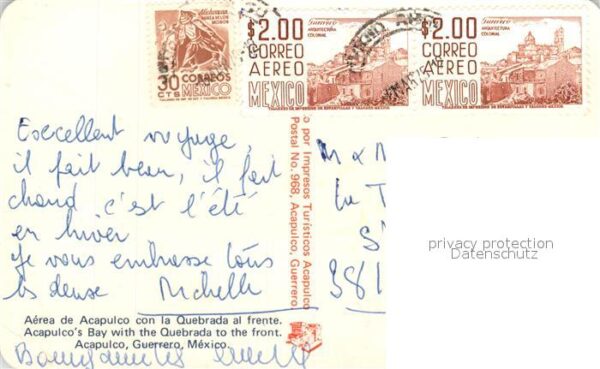 Michoacan
30 CORREOS
CTS MEXICO
$2.00
CORREO
AEREO
MEXICO
Guerrero
ARQUITECTURA
COLONIAL
$2.00
CORREO
AEREO
MEXICO
Guerrero
ARQUITECTURA
COLONIAL
Excellent voyage,
il fait beau, il fait
chaud c'est l'été
en hiver
Je vous embrasse tous
les deux Michelle
Aérea de Acapulco con la Quebrada al frente.
Acapulco's Bay with the Quebrada to the front.
Acapulco, Guerrero, México.
o por Impresos Turísticos Acapulco
Postal No. 968, Acapulco, Guerrero
M
La T
S
381
privacy protection
Datenschutz